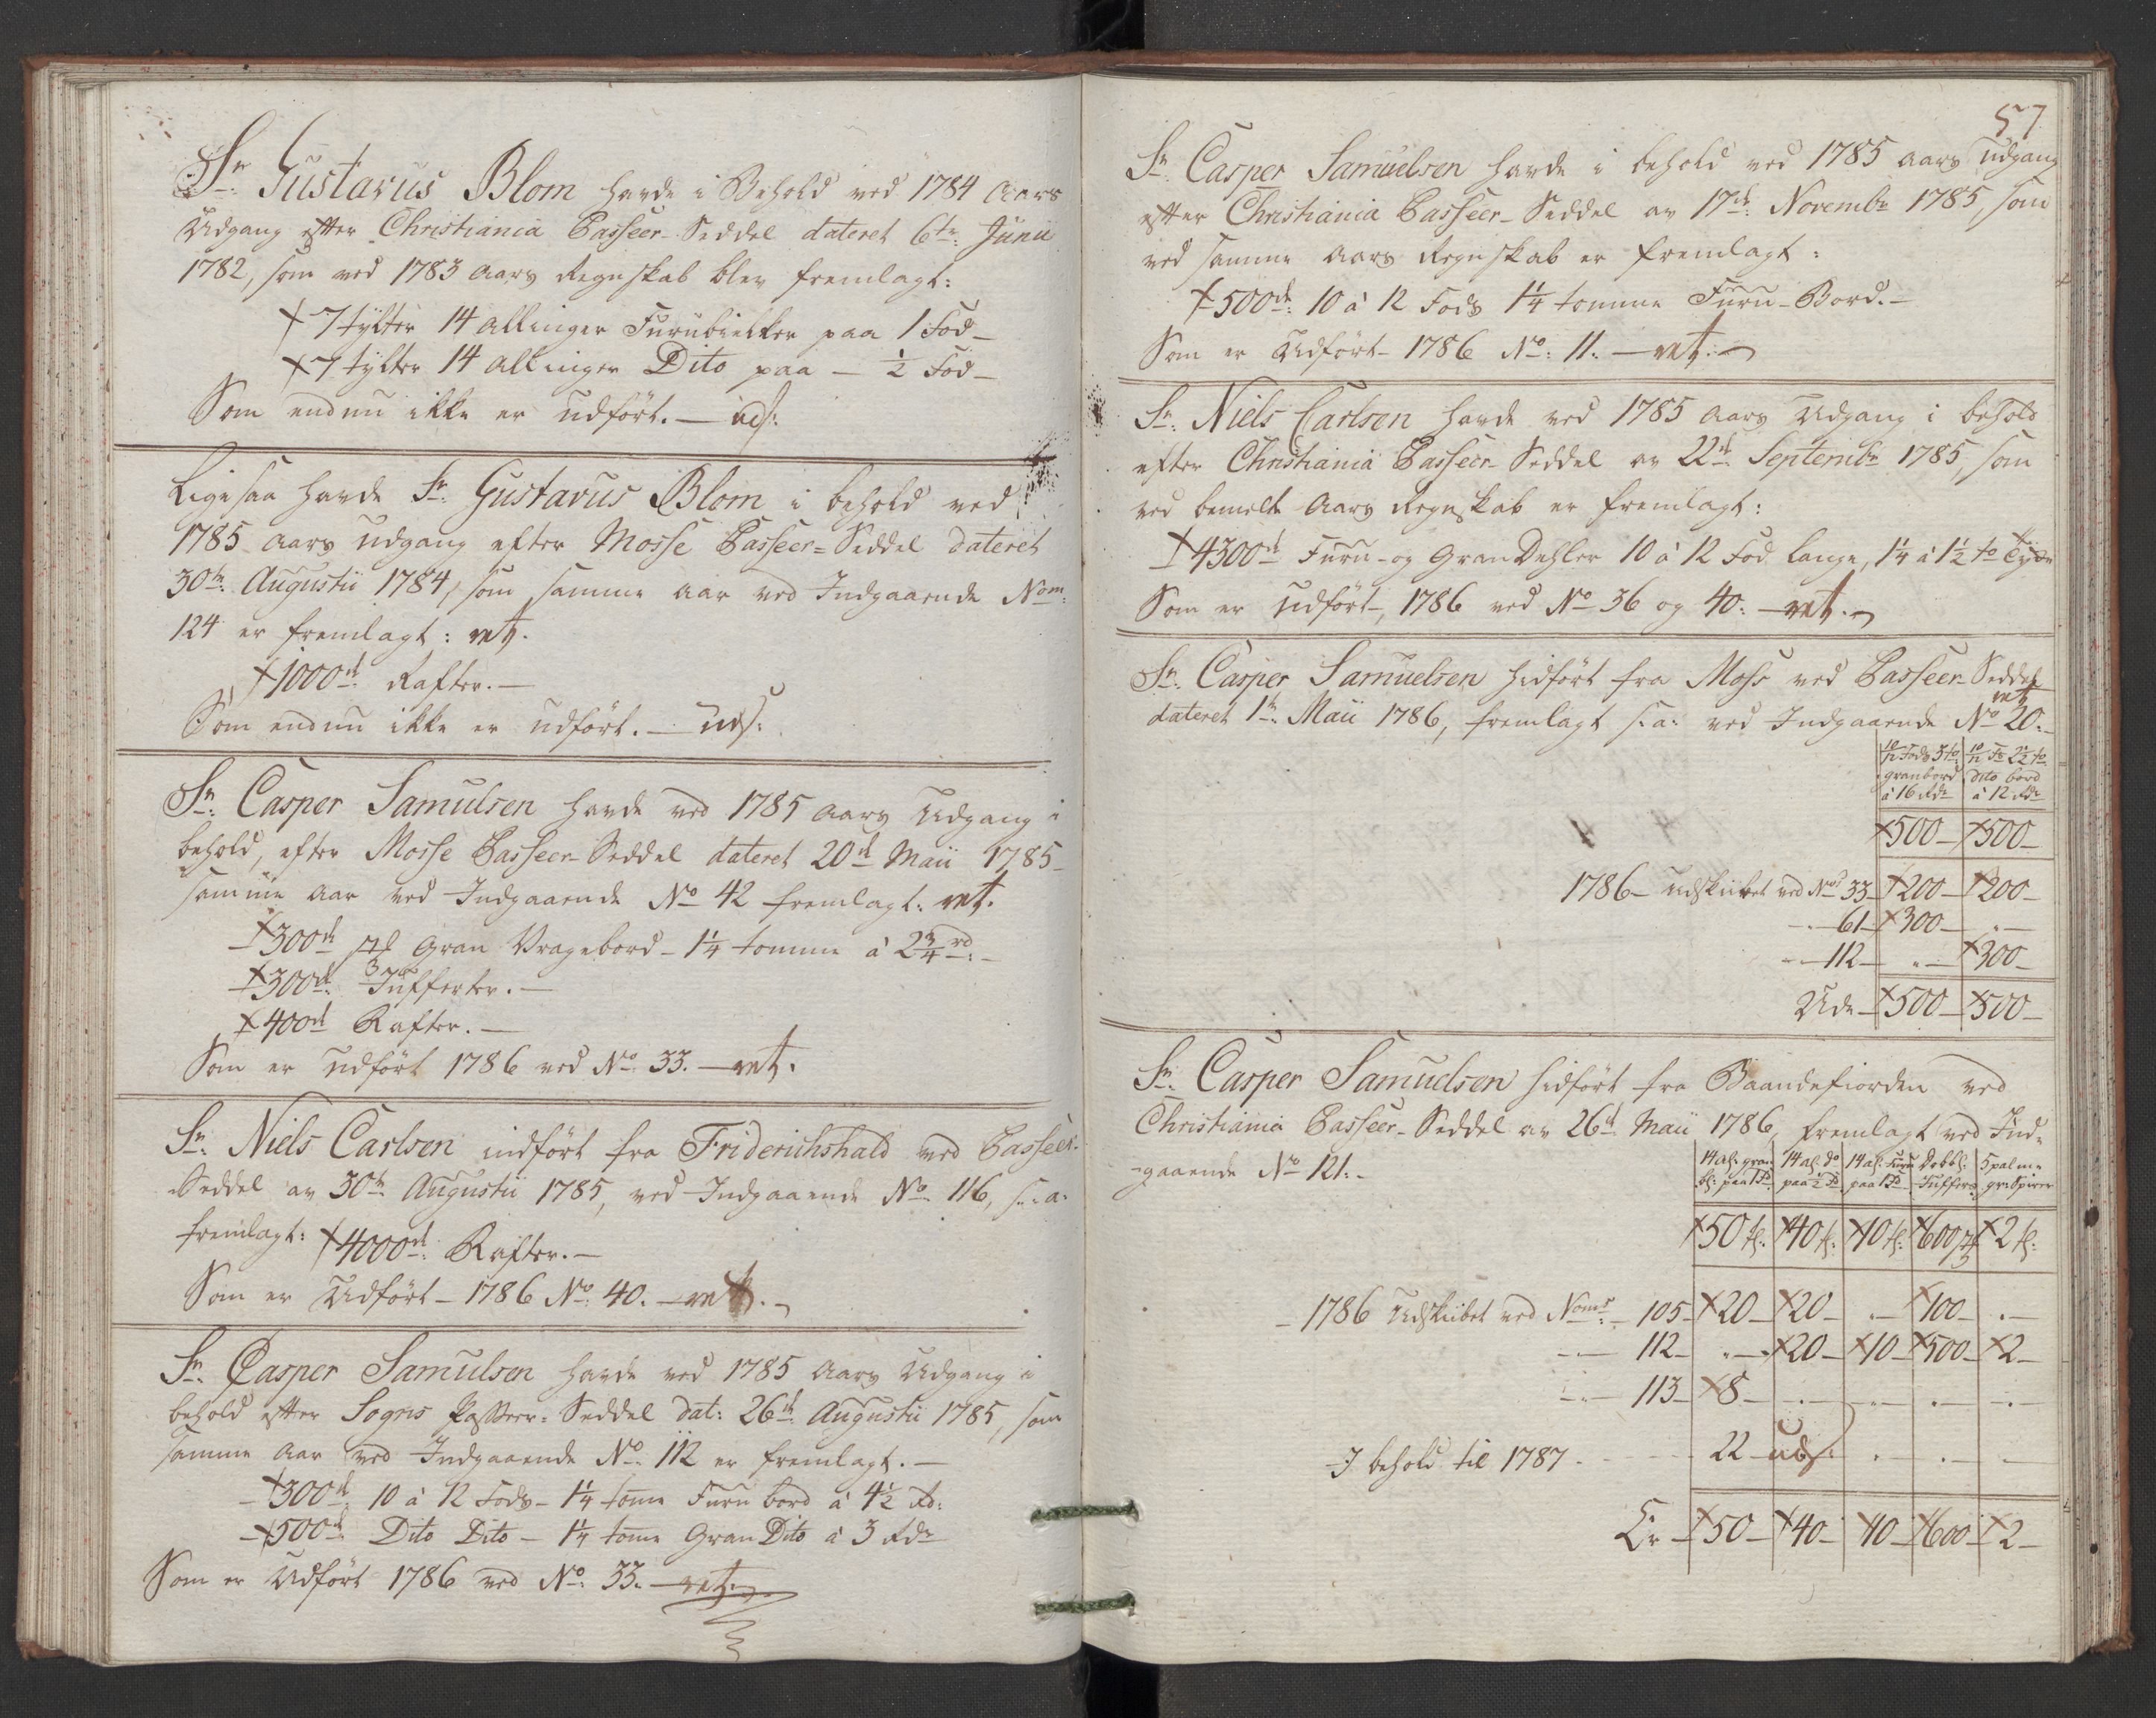 Sr. Gustavus Blom havde i Behold ved 1784 Aars
Udgang efter Christiania Passeer-Seddel dateret 6te. Junii
1782, som ved 1783 Aars Regnskab blev fremlagt:
7 tylter 14 allinger Furubielker paa 1 Fod
7 tylter 14 allinger Dito paa — ½ Fod
Som endnu ikke er udført. — uds:
Ligesaa havde Sr. Gustavus Blom i behold ved
1785 aars udgang efter Mosse Passeer-Seddel dateret
30te. Augustii 1784, som samme aar ved Indgaaende Nom:
124 er fremlagt: ret.
1000d. Rafter. —
Som endnu ikke er udført. — uds:
Sr. Casper Samulsen havde ved 1785 aars Udgang i
behold, efter Mosse Passeer-Seddel dateret 20d Maii 1785
samme aar ved Indgaaende No 42 fremlagt: ret.
300d Gran Vragebord - 1¼ tomme á 2¾ rd.
300d. Jufferter. —
400d Rafter. —
Som er udført 1786 ved No. 33. — ret.
Sr. Niels Carlsen indført fra Friderichshald ved Passeer-
Seddel av 30te Augustii 1785, ved Indgaaende No. 116, s: a:
fremlagt: 4000d. Rafter. —
Som er Udført - 1786 No. 40. — ret.
Sr. Casper Samulsen havde ved 1785 Aars Udgang i
behold efter Sogns Passeer-Seddel dat: 26d. Augustii 1785, som
samme Aar ved Indgaaende No. 112 er fremlagt. —
300d. 10 á 12 Fods - 1¼ tome Furu bord á 4½ Rd:
500d. Dito Dito - 1¼ tome Gran Dito á 3 Rdr
Som er Udført 1786 ved No. 33. — ret.
57
Sr. Casper Samuelsen havde i behold ved 1785 aars udgang
efter Christiania Passeer-Seddel av 17d. Novembr 1785, som
ved samme Aars Regnskab er fremlagt:
500d. 10 á 12 Fods 1¼ tomme Furu-Bord. —
Som er Udført - 1786 No: 11. — ret.
Sr. Niels Carlsen havde ved 1785 Aars Udgang i behold
efter Christiania Passeer-Seddel av 22d. Septembr 1785, som
ved bemelte Aars Regnskab er fremlagt:
4300d Furu- og Gran Dehler 10 á 12 Fod lange, 1¼ á 1½ to tyke
Som er udført, 1786 ved No 36 og 40: — ret.
Sr. Casper Samuelsen hidført fra Moss ved Passeer-Seddel
ret
dateret 1te. Maii 1786, fremlagt s: a: ved Indgaaende No 20: -
10/12 Fods 3 to granbord á 16 Rdr | 10/12 Fo 2½ to dito bord á 12 Rdr
500 — 500 —
1786 - udskibet ved Nos 33 — 200 — 200 —
— 61 — 300 — . —
— 112 — . — 300 —
Ude — 500 — 500 —
Sr. Casper Samuelsen hidført fra Baandefiorden ved
Christiania Passeer-Seddel av 26d. Maii 1786, fremlagt ved Ind-
-gaaende No 121: -
14 al: gran bl: paa 1 Fd | 14 al: do paa ½ Fd | 14 al: Furu paa 1 Fd | Dobbl: Juffers | 5 palm: gr: Spirer
50 tl. 40 tl: 10 tl: 600 2 tl:
- 1786 Udskibet ved Noms: - 105 - 20 - 20 - . - 100 - . -
— 112 - . - 20 - 10 - 500 - 2 -
— 113 - 8 - . - . - . - . -
I behold til 1787 - 22 uds. . - . - . -
Er - 50 - 40 - 10 - 600 - 2 -